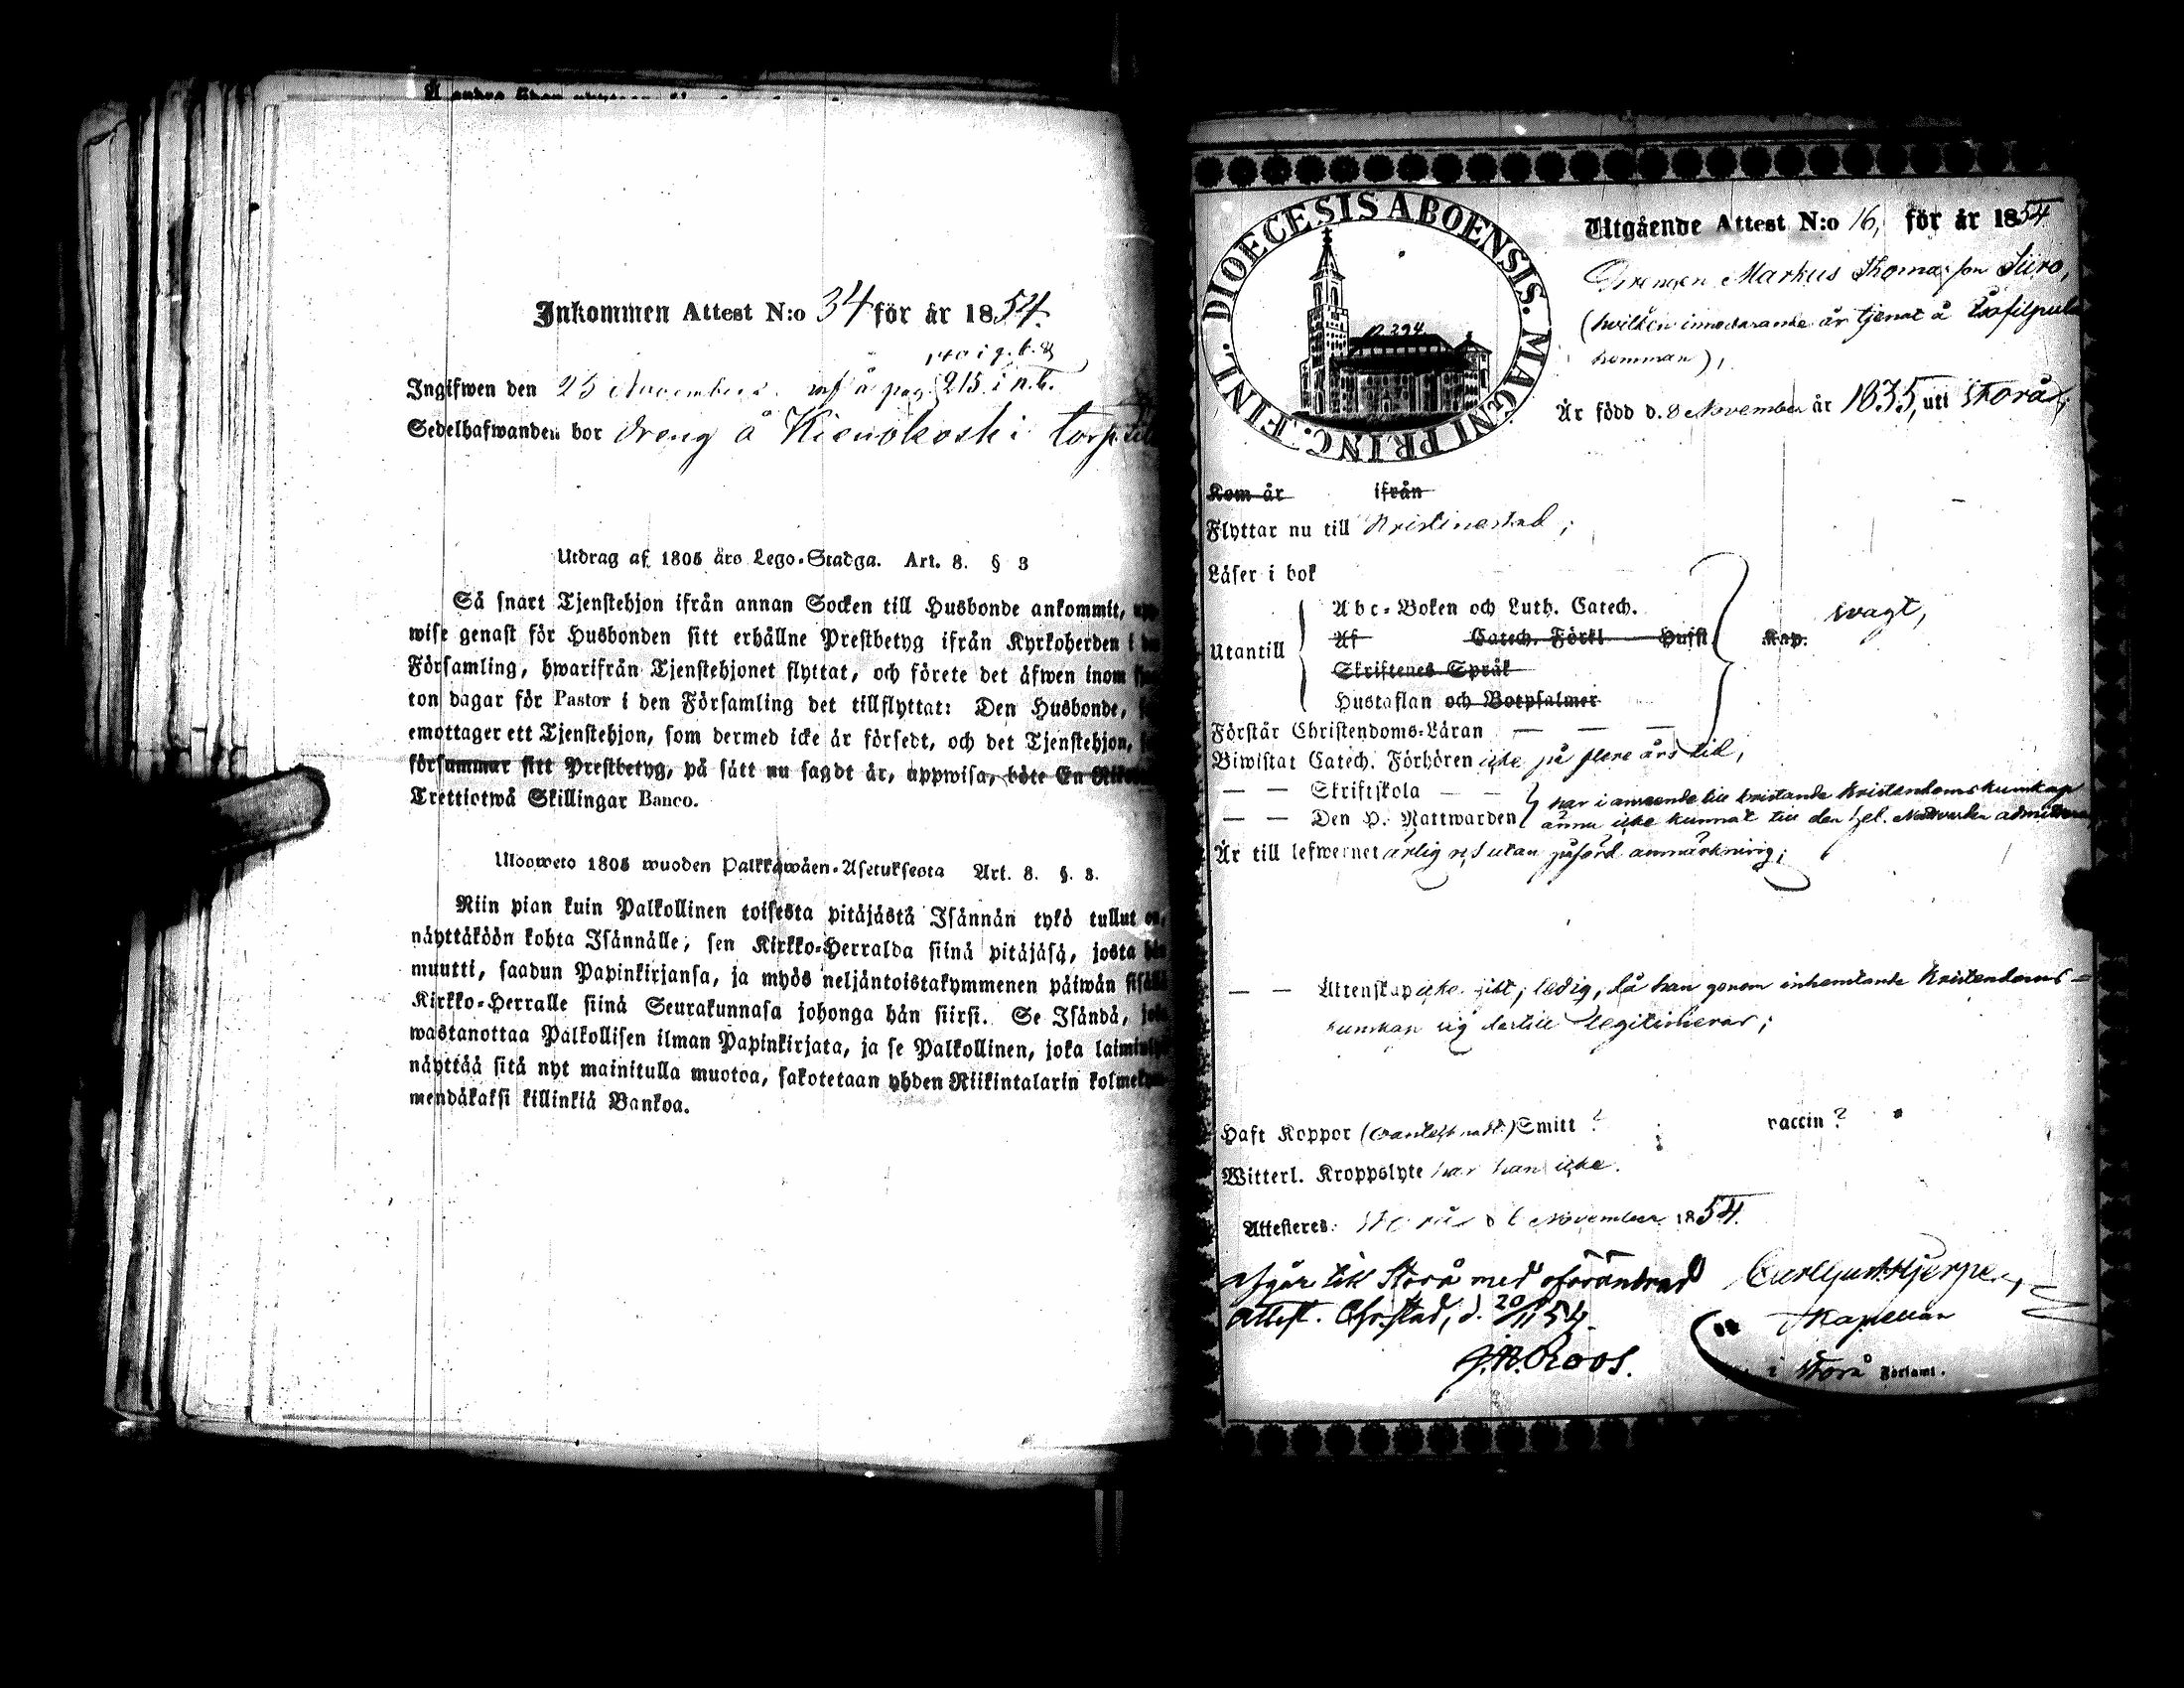 Inkommen Attest N:o 34 för år 1854.
Ingifwen den 25 November. inf. å pag. 215. i n.b.
Sedelhafwanden bor dreng å Kienokoski torp
Utdrag af 1805 års Lego-Stadga. Art. 8. § 3
Så snart Tjenstehjon ifrån annan Socken till Husbonde ankommit,
wise genast för Husbonden sitt erhållne Prestbetyg ifrån Kyrkoherden i
Församling, hwarifrån Tjenstehjonet flyttat, och förete det äfwen inom
ton dagar för Pastor i den Församling det tillflyttat: Den Husbonde,
emottager ett Tjenstehjon, som dermed icke är försedt, och det Tjenstehjon,
försummar sitt Prestbetyg, på sätt nu sagdt är, uppwisa, böte En
Trettiotwå Skillingar Banco.
Uloosweto 1805 wuoden Palkkawäen-Asetuksesta Art. 8. §. 3.
Niin pian kuin Palkollinen toisesta pitäjästä Isännän tykö tullut on,
näyttäköön kohta Isännälle, sen Kirkko-Herralda siinä pitäjäsä, josta hän
muutti, saadun Papinkirjansa, ja myös neljäntoistakymmenen päiwän sisällä
Kirkko-Herralle siinä Seurakunnasa johonga hän siirsi. Se Isändä, joka
wastanottaa Palkollisen ilman Papinkirjata, ja se Palkollinen, joka
näyttää sitä nyt mainitulla muotoa, sakotetaan yhden Riikintalarin
mendäkaksi killinkiä Bankoa.
DIOECESIS ABOENSIS. MAGNI PRINC. FINL.
N 294
Utgående Attest N:o 16, för år 1854
Drengen Markus Thomasson Siiro,
(hwilken innewarande år tjenat å
hemman),
Är född d. 8 November år 1835, uti Storå,
Kom år ifrån
Flyttar nu till Kristinestad;
Läser i bok
Abc-Boken och Luth. Catech.
swagt,
Utantill
Af Catech. Förkl Hufst. Kap.
Skriftenes Språk
Hustaflan och Botpsalmer
Förstår Christendoms-Läran — — —
Biwistat Catech. Förhören icke på flere års tid,
— — Skriftskola — — har i anseende till bristande kristendomskunskap
— — Den H. Nattwarden ännu icke kunnat till den hel. Nattvarden
Är till lefwernet ärlig och utan påförd anmärkning;
— — Äktenskap icke gift; ledig, då han genom inhemtande kristendoms-
kunskap sig dertill legitimerar;
Haft Koppor Smitt ? vaccin ?
Witterl. Kroppslyte har han icke.
Attesteres: Storå d 6 November 1854.
Afgår till Storå med oförändrad
attest. Chr.stad, d. 20/11 54.
J.A. Roos.
Carl Gust. Hjerpe
Kapellan
i Storå Församl.